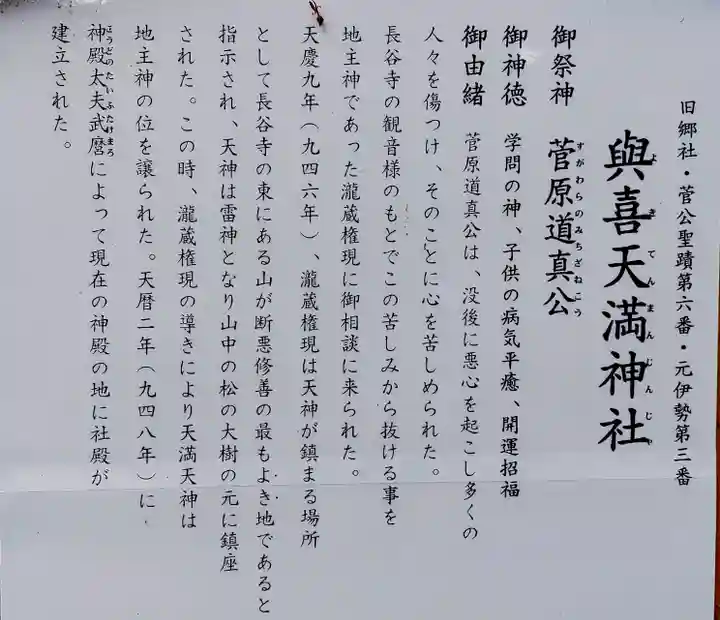 旧郷社・菅公聖蹟第六番・元伊勢第三番
與喜天満神社
よきてんまんじんじゃ
御祭神 菅原道真公
すがわらのみちざねこう
御神徳 学問の神、子供の病気平癒、開運招福
御由緒 菅原道真公は、没後に悪心を起こし多くの
人々を傷つけ、そのことに心を苦しめられた。
長谷寺の観音様のもとでこの苦しみから抜ける事を
地主神であった瀧蔵権現に御相談に来られた。
天慶九年(九四六年)、瀧蔵権現は天神が鎮まる場所
として長谷寺の東にある山が断悪修善の最もよき地であると
指示され、天神は雷神となり山中の松の大樹の元に鎮座
された。この時、瀧蔵権現の導きにより天満天神は
地主神の位を譲られた。天暦二年(九四八年)に
神殿太夫武麿によって現在の神殿の地に社殿が
こうどのたいふたけまろ
建立された。